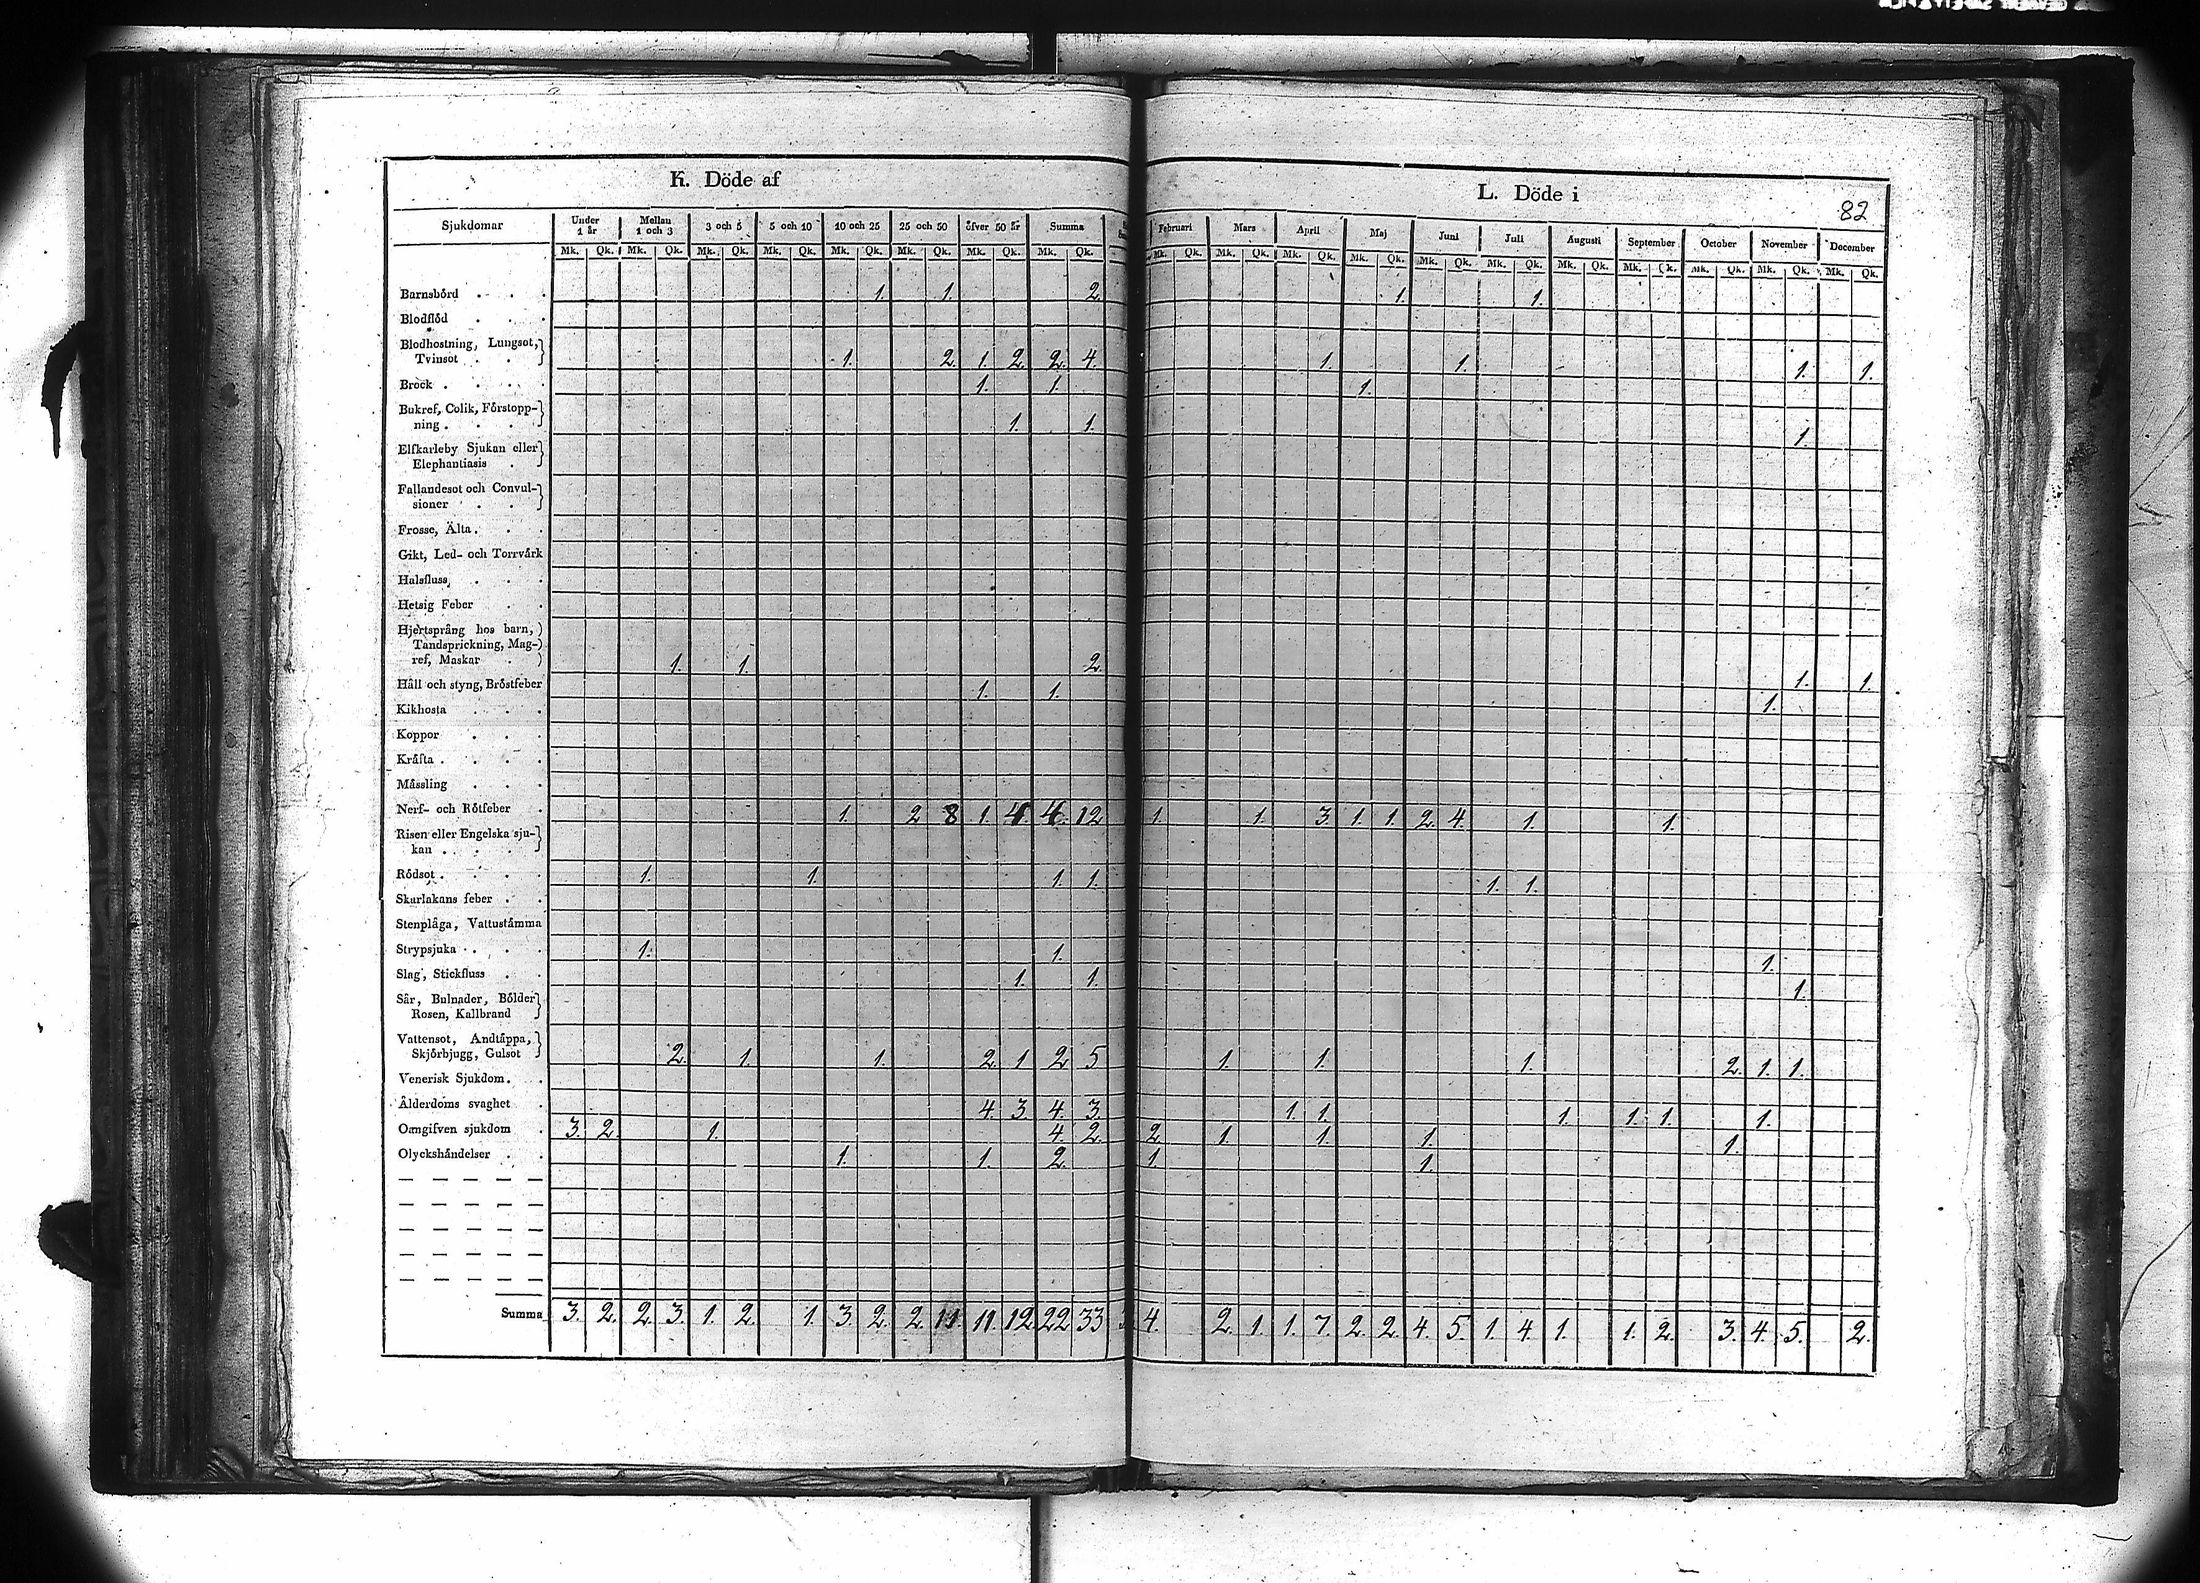 K. Döde af
L. Döde i
82
Sjukdomar Under 1 år Mellan 1 och 3 3 och 5 5 och 10 10 och 25 25 och 50 öfver 50 år Summa Februari Mars April Maj Juni Juli Augusti September October November December
Mk. Qk. Mk. Qk. Mk. Qk. Mk. Qk. Mk. Qk. Mk. Qk. Mk. Qk. Mk. Qk. Mk. Qk. Mk. Qk. Mk. Qk. Mk. Qk. Mk. Qk. Mk. Qk. Mk. Qk. Mk. Qk. Mk. Qk. Mk. Qk. Mk. Qk.
Barnsbörd . . . 1. 1. 2. 1. 1.
Blodflöd . . .
Blodhostning, Lungsot,
Tvinsot . . 1. 2. 1. 2. 2. 4. 1. 1. 1. 1.
Brock . . . . 1. 1. 1.
Bukref, Colik, Förstopp-
ning . . . . 1. 1. 1.
Elfkarleby Sjukan eller
Elephantiasis .
Fallandesot och Convul-
sioner . . .
Frosse, Älta . . .
Gikt, Led- och Torrvärk
Halsfluss . . .
Hetsig Feber . .
Hjertsprång hos barn,
Tandsprickning, Mag-
ref, Maskar . 1. 1. 2. 1. 1.
Håll och styng, Bröstfeber 1. 1. 1.
Kikhosta . . .
Koppor . . .
Kräfta . . . .
Mässling . . .
Nerf- och Rötfeber . 1. 2 8 1. 4. 4. 12 1. 1. 3. 1. 1. 2. 4. 1. 1.
Risen eller Engelska sju-
kan . . . .
Rödsot . . . . 1. 1. 1. 1. 1. 1.
Skarlakans feber . .
Stenplåga, Vattustämma
Strypsjuka . . . 1. 1. 1.
Slag, Stickfluss . . 1. 1. 1.
Sår, Bulnader, Bölder
Rosen, Kallbrand
Vattensot, Andtäppa,
Skjörbjugg, Gulsot 2. 1. 1. 2. 1 2. 5 1. 1. 1. 2. 1. 1.
Venerisk Sjukdom . .
Ålderdoms svaghet . 4. 3 4. 3. 1. 1. 1. 1. 1. 1.
Omgifven sjukdom . 3. 2. 1. 4. 2. 2 1. 1. 1. 1.
Olyckshändelser . . 1. 1. 2. 1. 1.
Summa 3. 2. 2. 3. 1. 2. 1. 3. 2. 2. 11. 11. 12. 22 33 4. 2. 1. 1. 7. 2. 2. 4. 5. 1. 4. 1. 1. 2. 3. 4. 5. 2.